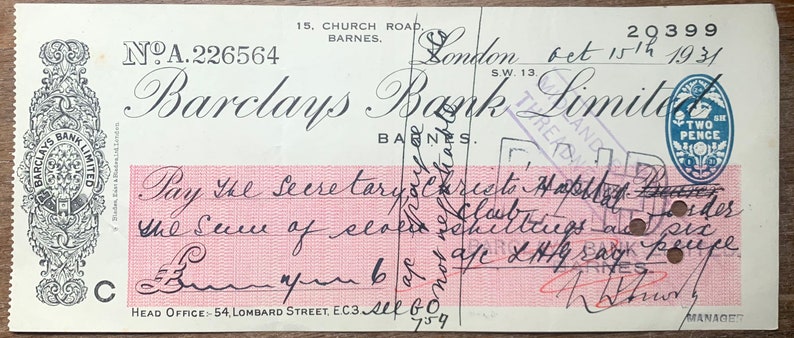 15, CHURCH ROAD,
BARNES.
20399
No. A.226564
London Oct 15th 1931
S.W. 13.
Barclays Bank Limited
BARNES.
TWO PENCE
BARCLAYS BANK LIMITED
Blades, East & Blades Ltd, London
MIDLAND
PAID
Pay The Secretary, Christs Hospital Bearer
Club order
the Sum of seven shillings and six
pence
BARCLAYS BANK
a/c L H Gray
BARNES
£
6
C
HEAD OFFICE:- 54, LOMBARD STREET, E.C.3.
MANAGER
& Co
a/c payee
not negotiable